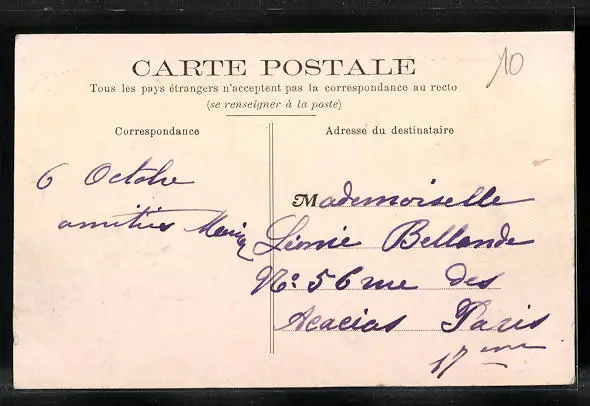 10
CARTE POSTALE
Tous les pays étrangers n'acceptent pas la correspondance au recto
(se renseigner à la poste)
Correspondance
Adresse du destinataire
6 Octobre
amitiés
Mademoiselle
Léonie Bellande
No: 56 rue des
Acacias Paris
17eme